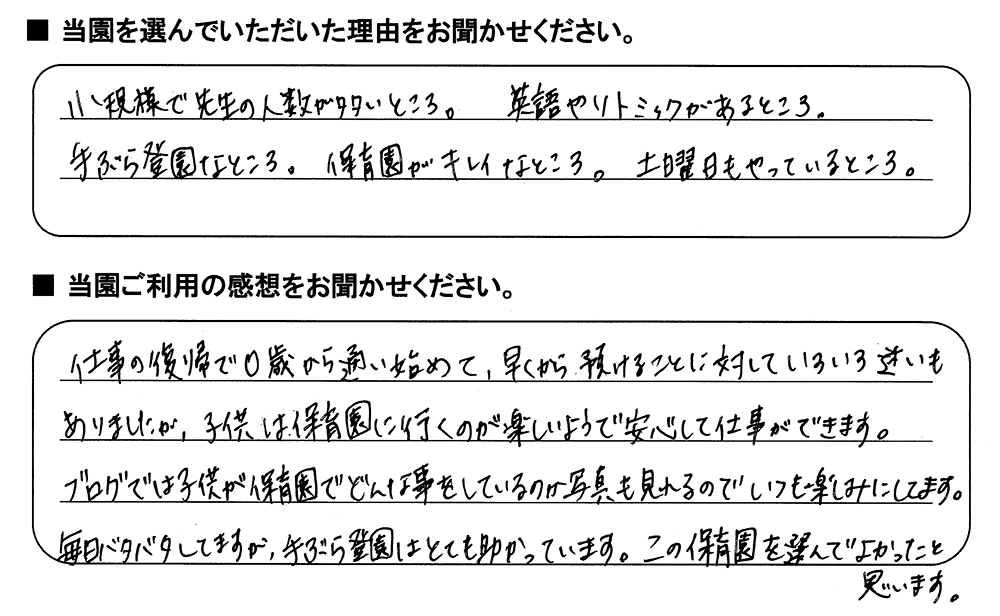 ■ 当園を選んでいただいた理由をお聞かせください。
小規模で先生の人数が多いところ。 英語やリトミックがあるところ。
手ぶら登園なところ。 保育園がキレイなところ。 土曜日もやっているところ。
■ 当園ご利用の感想をお聞かせください。
仕事の復帰で0歳から通い始めて、早くから預けることに対していろいろ迷いも
ありましたが、子供は保育園に行くのが楽しいようで安心して仕事ができます。
ブログでは子供が保育園でどんな事をしているのか写真も見れるのでいつも楽しみにしてます。
毎日バタバタしてますが、手ぶら登園はとても助かっています。この保育園を選んでよかったと
思います。